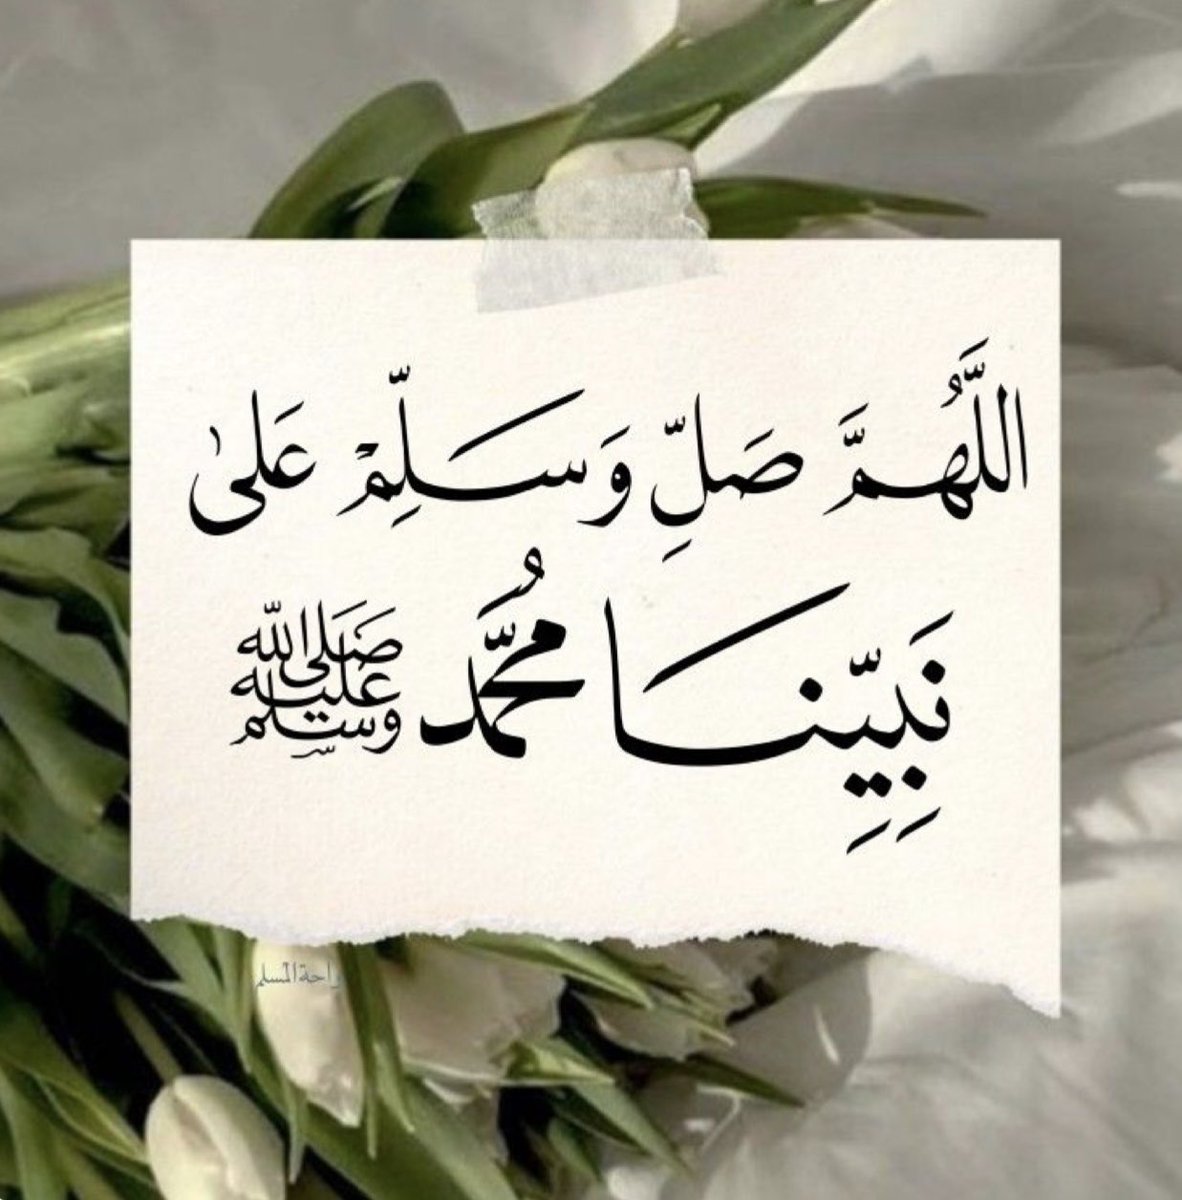 اللَّهُمَّ صَلِّ وَسَلِّمْ عَلىٰ
نَبِيِّنَا مُحَمَّد ﷺ
راحة المسلم